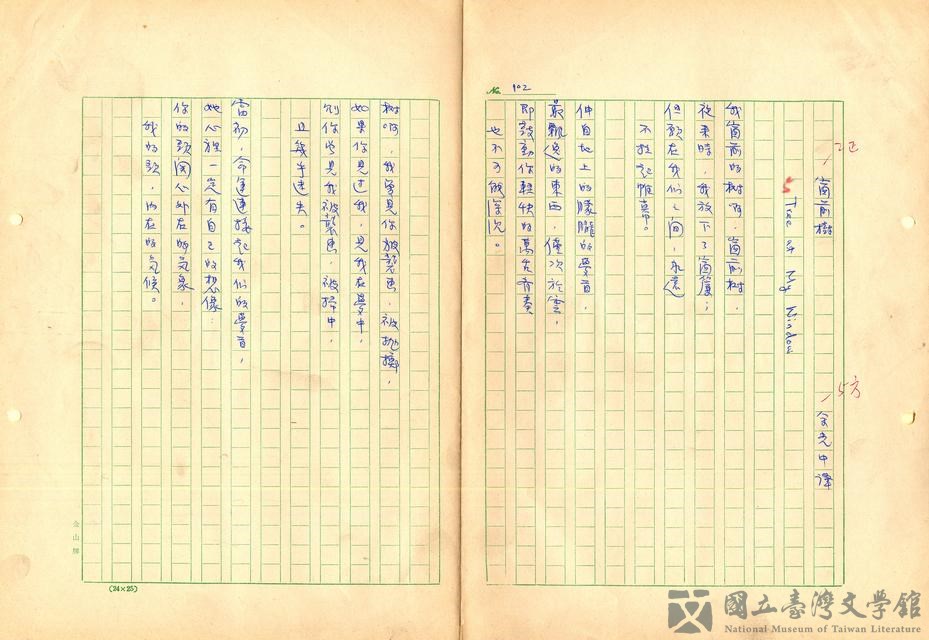 No. 102
窗前樹
5方
余光中譯
5
Tree at My Window
我窗前的树啊,窗前树,
夜來時,我放下了窗簾;
但願在我們之間,永遠
不拉起帷幕。
伸自地上的朦朧的夢首,
最飄逸的東西,僅次於雲,
即鼓動你輕快的萬舌齊奏
也不可能深沉。
树啊,我曾見你被襲击,被拋擲,
如果你見过我,見我在夢中,
則你必見我被襲击,被掃中,
且幾乎迷失。
當初,命運連接起我们的夢首,
她心裡一定有自己的想像:
你的頭関心外在的氣象,
我的頭,內在的气候。
金山牌
(24×25)
國立臺灣文學館
National Museum of Taiwan Literature